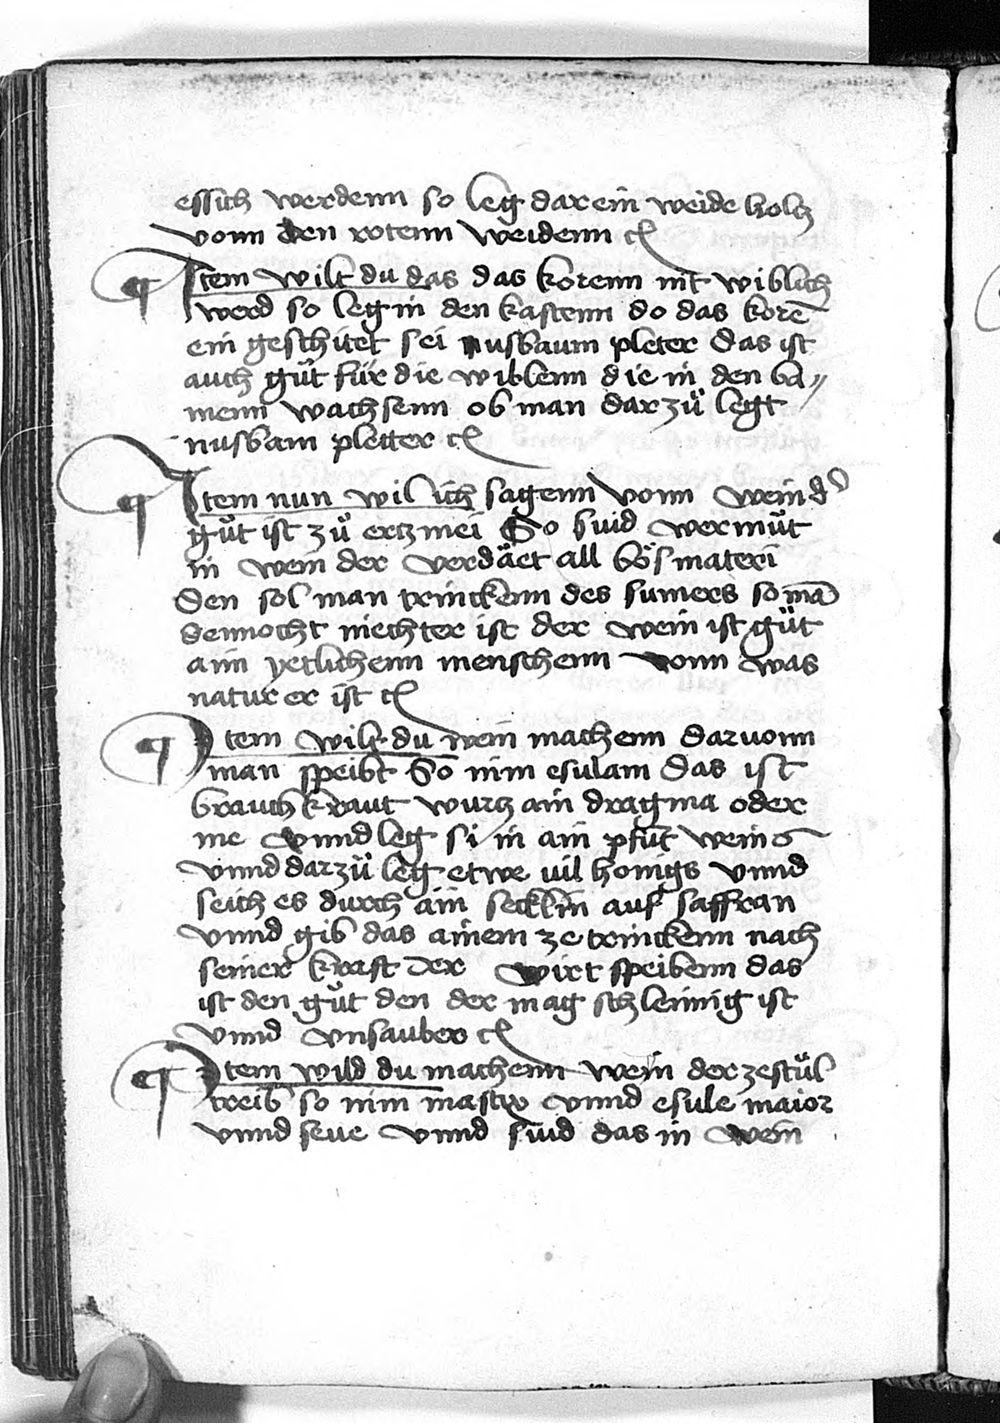 essich werdenn so leg dar ein weide holcz
vonn den rotenn weidenn ⁊c
¶ Item wilt du das das korenn nit wiblich
werd so leg in den kastenn do das korē
ein geschitet sei nusbaum pleter das ist
auch gůt für die wiblenn die in den ba⸗
menn wachsenn ob man dar zů legt
nusbam pletter ⁊c
¶ Item nun wil ich sagenn vonn wein d᷎
gůt ist zů ertzmei So suid wermůt
in wein der verdäet all bös materi
den sol man trinckenn des sumers so mā
dennocht niechter ist der wein ist gůt
aim yetlichenn menschenn vonn was
natur er ist ⁊c
¶ Item wilt du wein machenn daruonn
man speibt So nim esulam das ist
brauchkraut wurcz ain dragma oder
me vnnd leg si in ain pfūt weins
vnnd darzů leg etwe uil honigs vnnd
seich es durch ain secklin auf saffran
vnnd gib das ainem ze trinckenn nach
seiner kraft der wirt speibenn das
ist den gůt den der mag schleimig ist
vnnd vnsauber ⁊c
¶ Item wild du machenn wein der zestůl
treib so nim mastix vnnd esule maior
vnnd seue vnnd suid das in wein